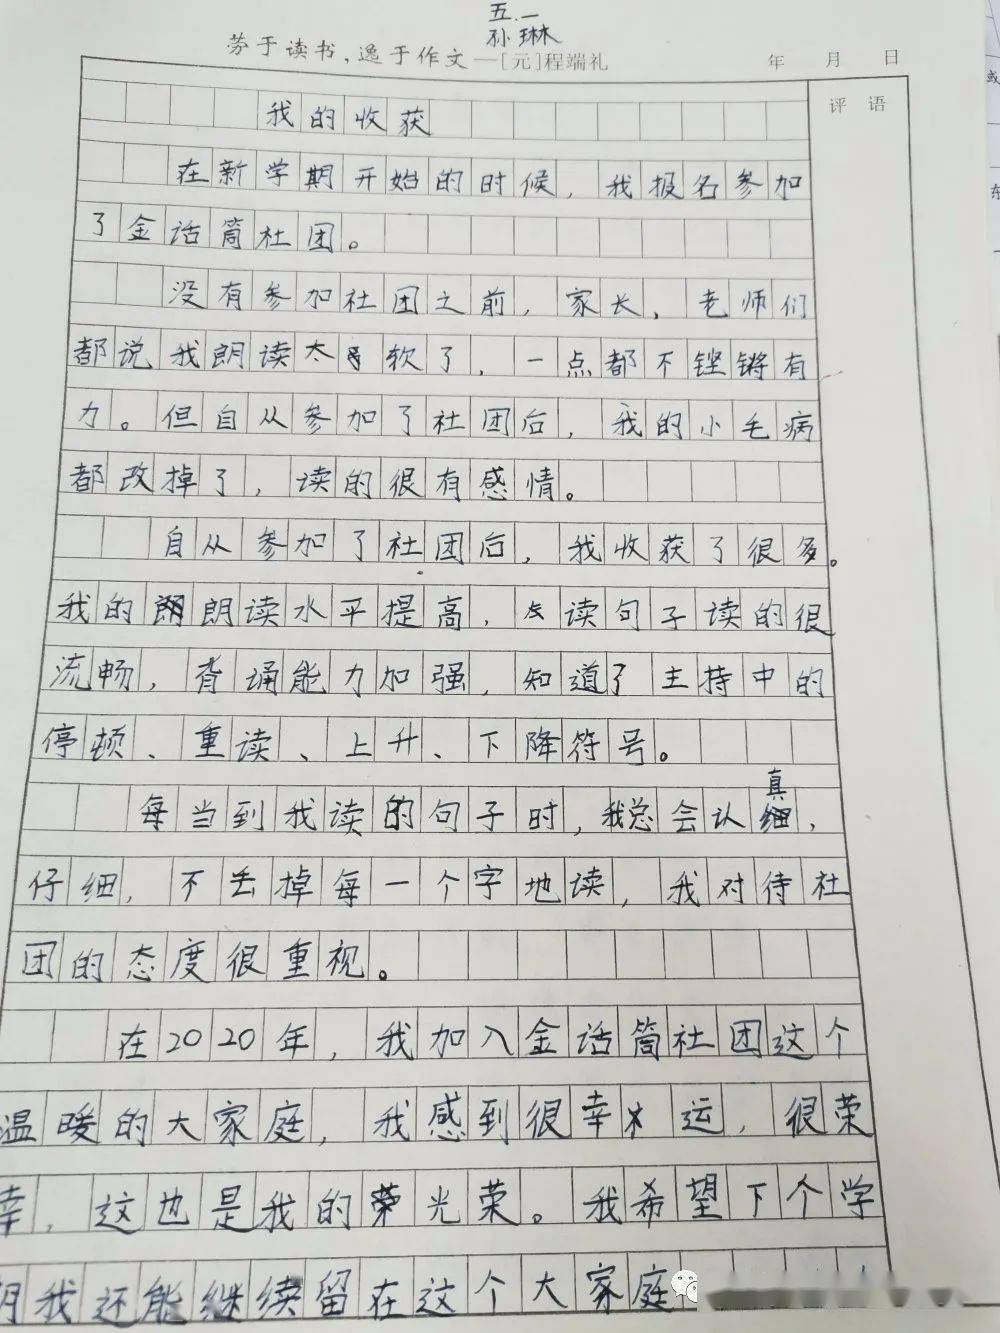 五.一
孙琳
劳于读书，逸于作文—[元]程端礼 年 月 日
评 语
我的收获
在新学期开始的时候，我报名参加
了金话筒社团。
没有参加社团之前，家长、老师们
都说我朗读太软了，一点都不铿锵有
力。但自从参加了社团后，我的小毛病
都改掉了，读的很有感情。
自从参加了社团后，我收获了很多。
我的朗读水平提高，读句子读的很
流畅，背诵能力加强，知道了主持中的
停顿、重读、上升、下降符号。
每当到我读的句子时，我总会认真，
仔细，不丢掉每一个字地读，我对待社
团的态度很重视。
在2020年，我加入金话筒社团这个
温暖的大家庭，我感到很幸运，很荣
幸，这也是我的光荣。我希望下个学
期我还能继续留在这个大家庭
或
东